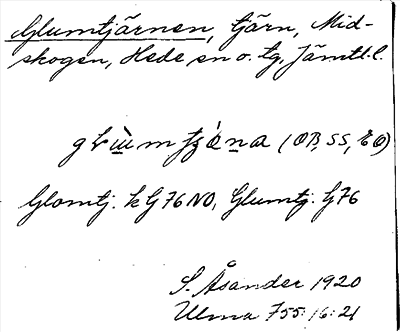 Glumtjärnen, tjärn, Mid-
skogen, Hede sn o. tg, Jämtl. l.
(OB, SS, EO)
Glomtj. k G 76 NO, Glumtj. G 76
S. Åsander 1920
Ulma 755:16:21